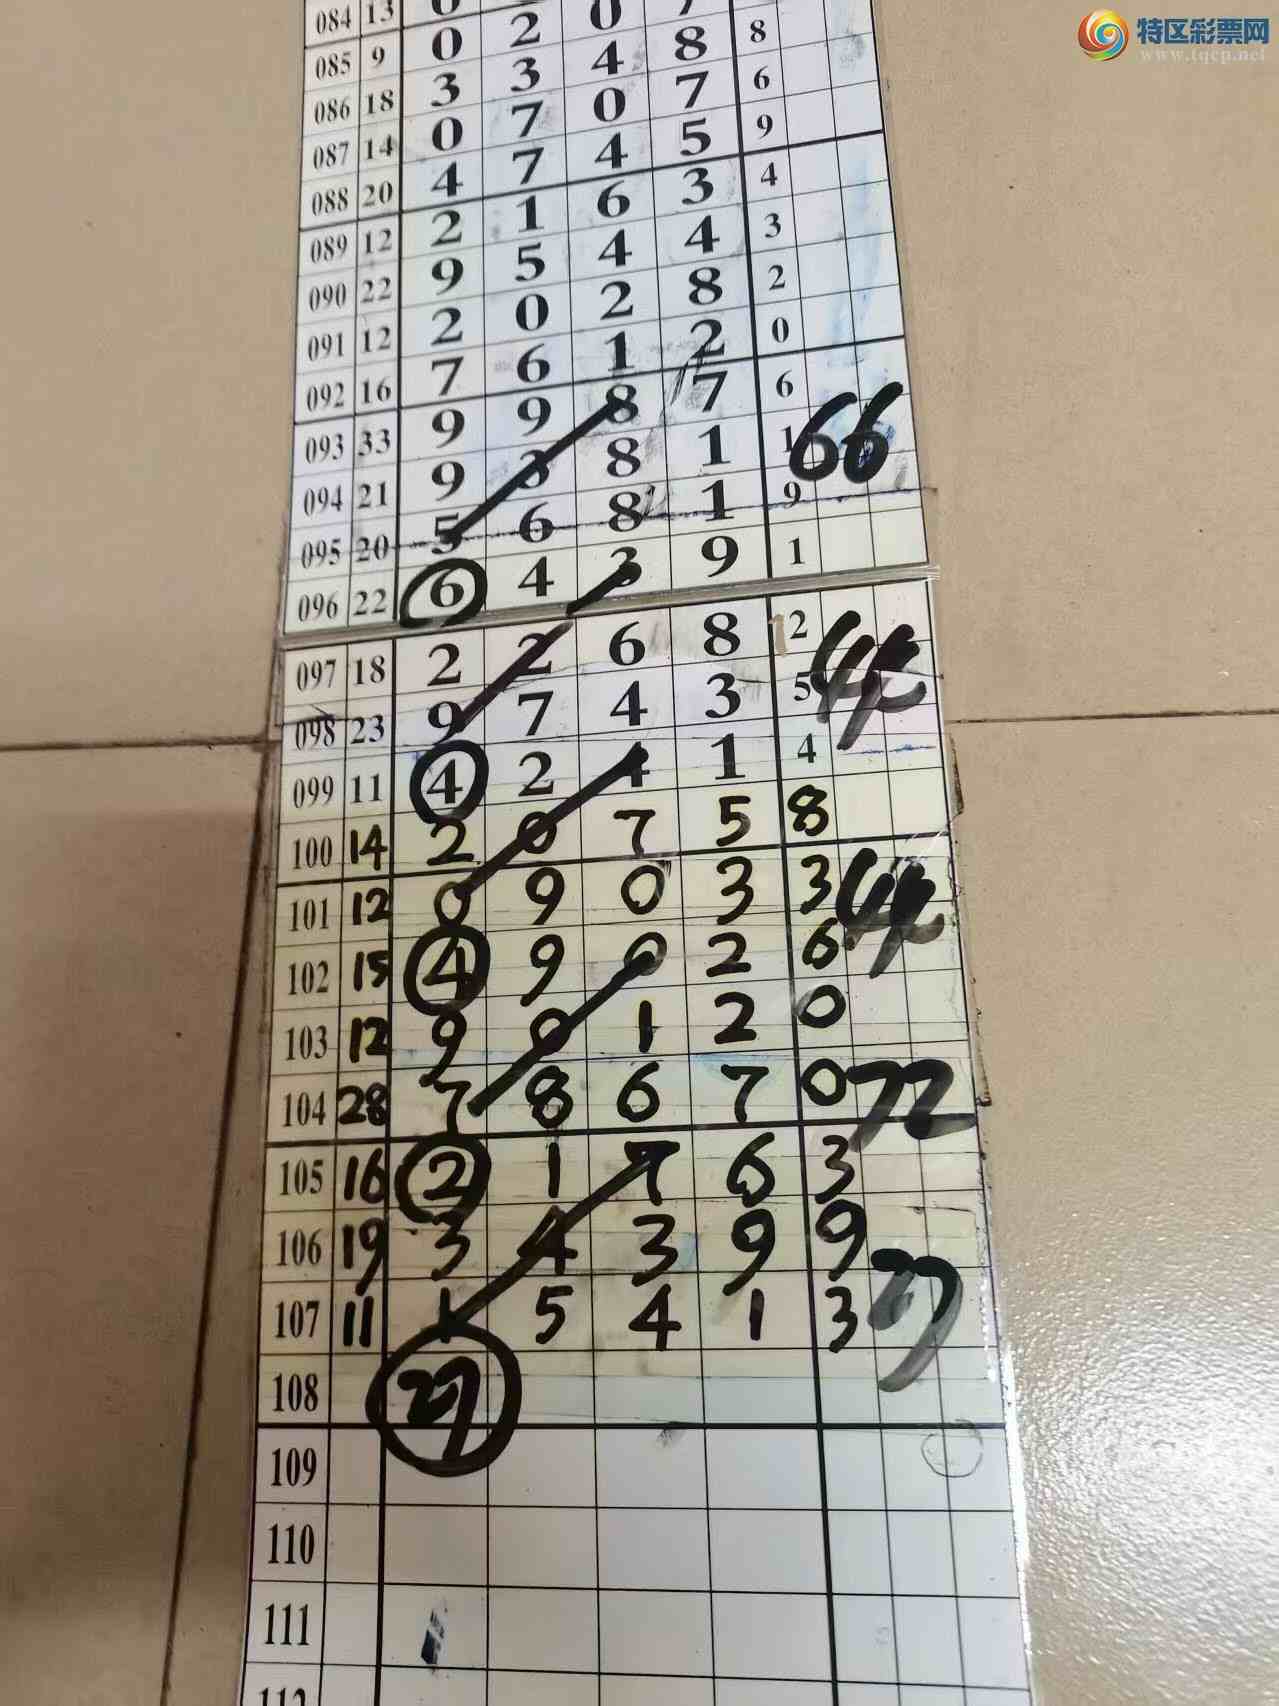 特区彩票网
www.tqcp.net
084 13 0 2 0 7
085 9 0 2 0 7 8
086 18 3 3 4 8 6
087 14 0 7 0 7 9
088 20 4 7 4 5 4
089 12 2 1 6 3 3
090 22 9 5 4 4 2
091 12 2 0 2 8 0
092 16 7 6 1 2 6
093 33 9 9 8 7 1 66
094 21 9 3 8 1 9
095 20 5 6 8 1
096 22 6 4 3 9 1
097 18 2 2 6 8 2 44
098 23 9 7 4 3 5
099 11 4 2 4 1 4
100 14 2 0 7 5 8
101 12 0 9 0 3 3 44
102 15 4 9 0 2 6
103 12 9 0 1 2 0
104 28 7 8 6 7 0 72
105 16 2 1 7 6 3
106 19 3 4 3 9 9
107 11 1 5 4 1 3 77
108 27
109
110
111
112